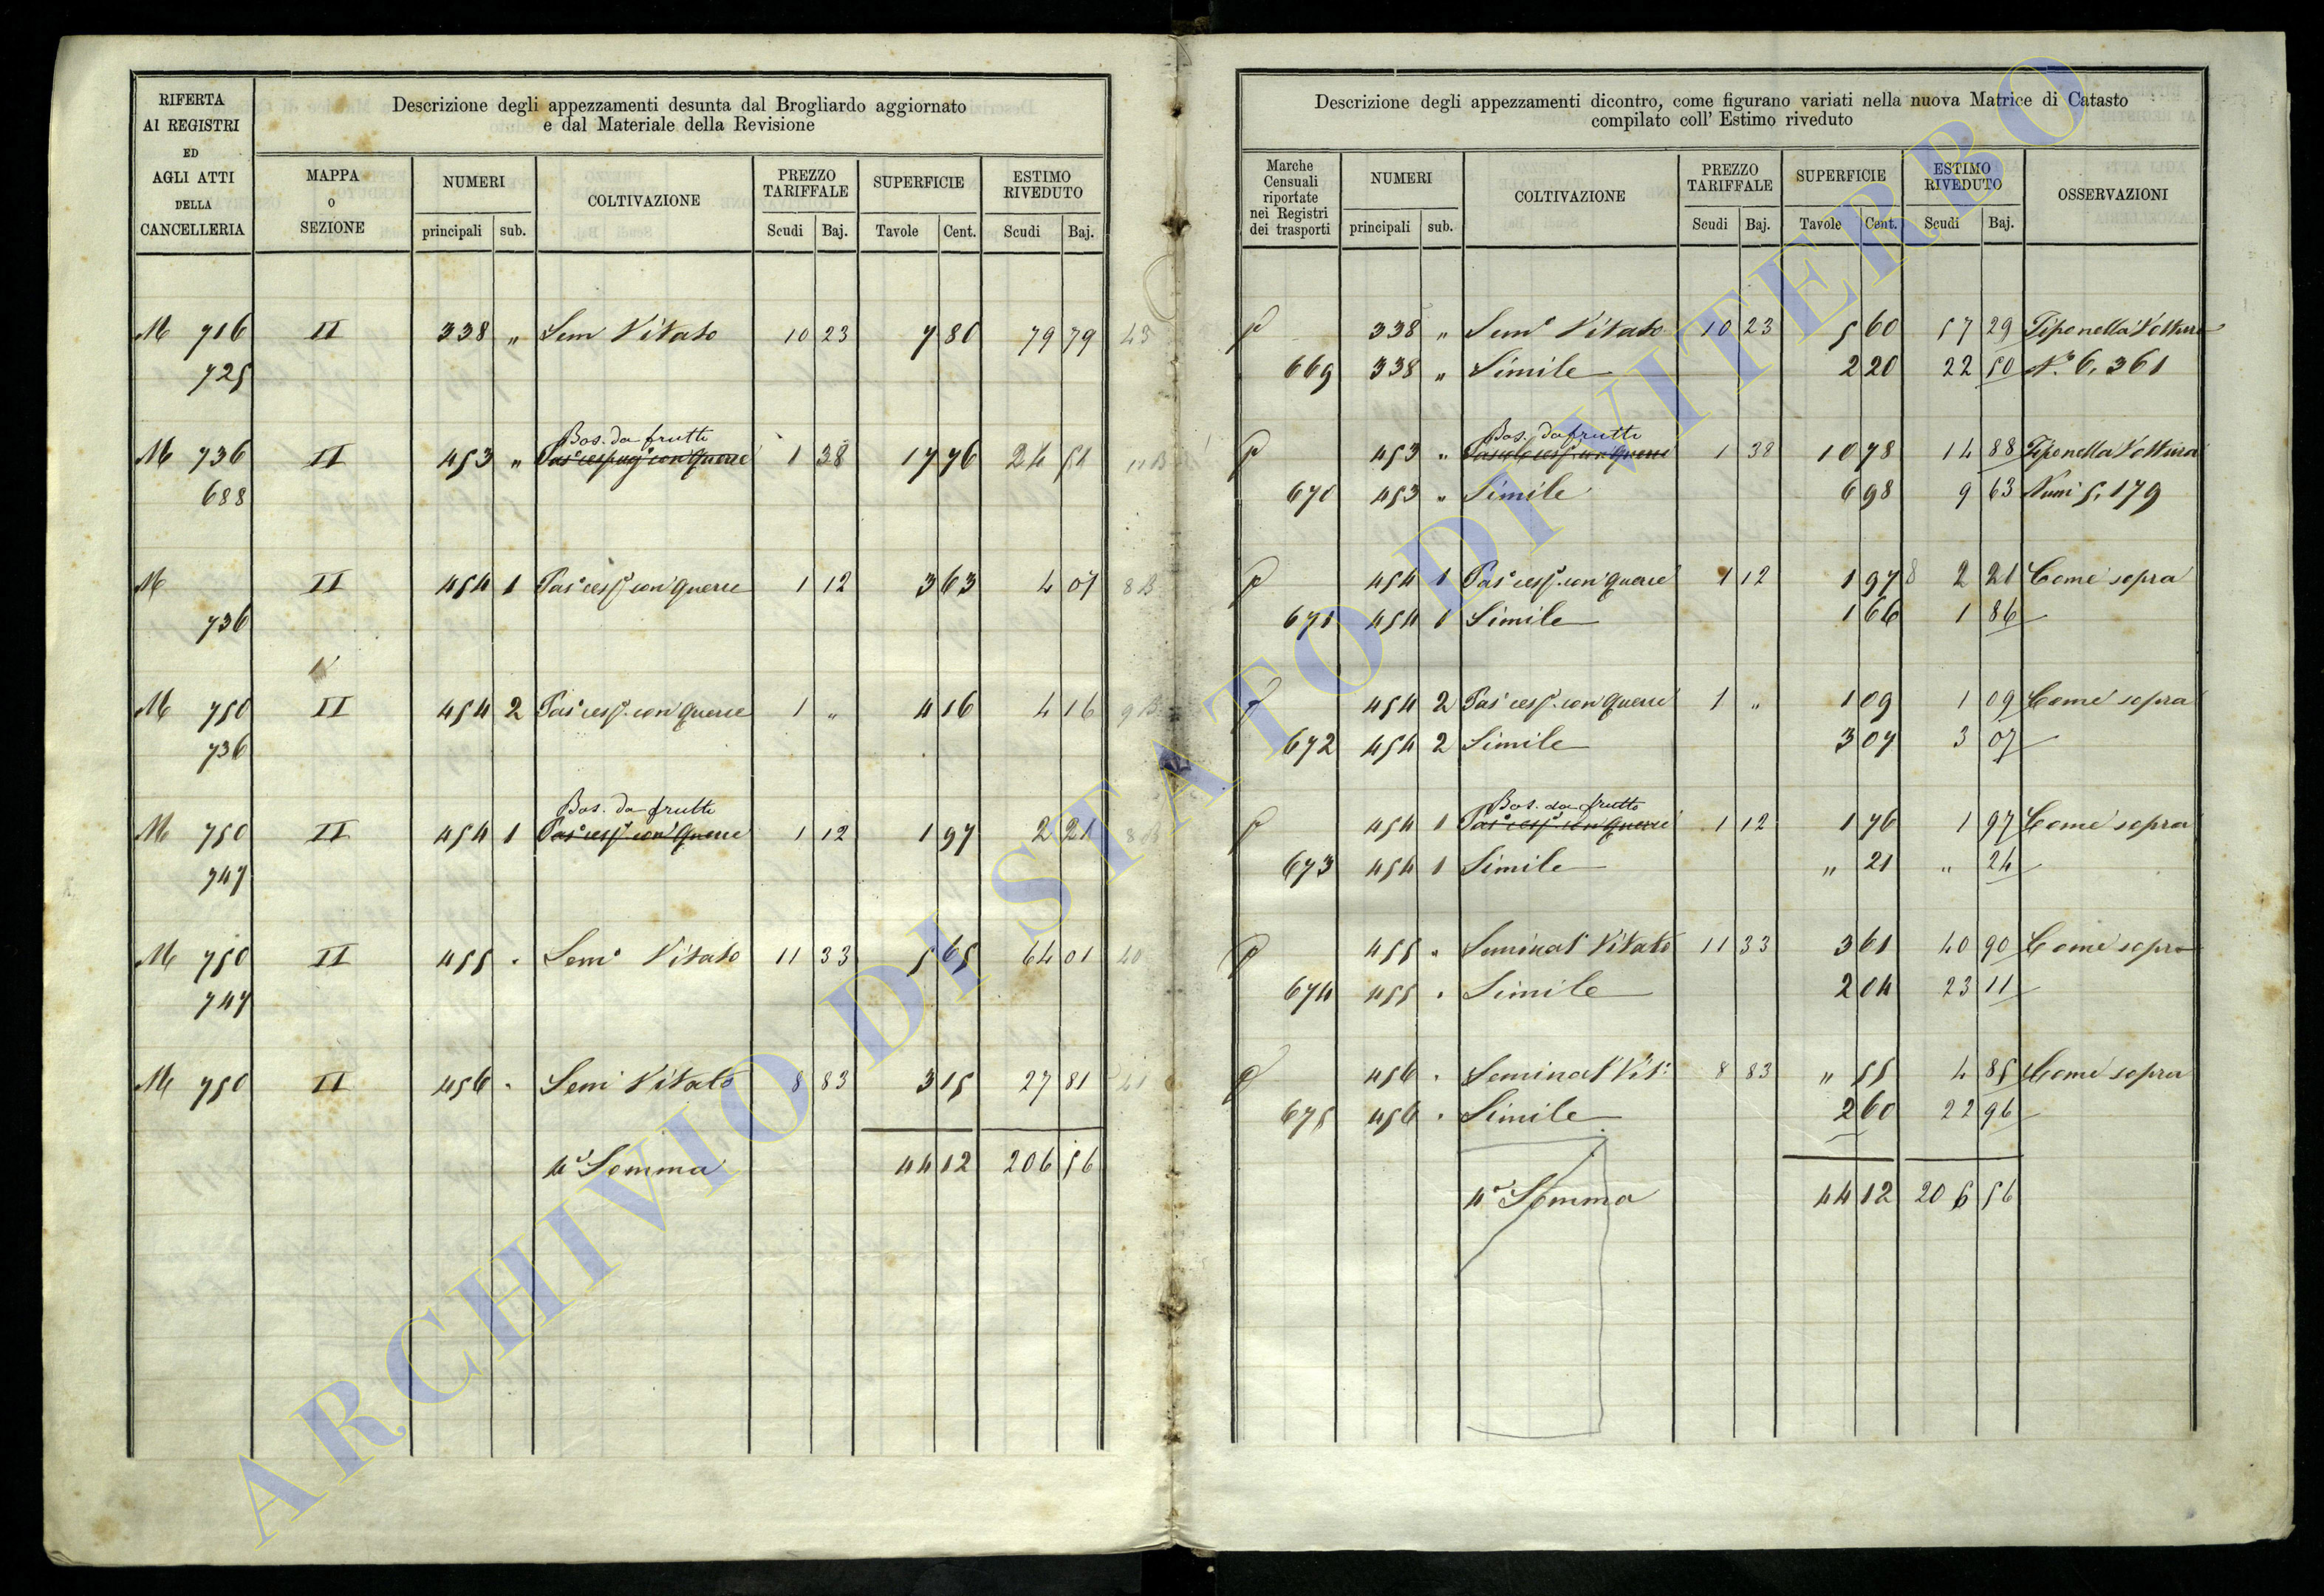 RIFERTA
AI REGISTRI
ED
AGLI ATTI
DELLA
CANCELLERIA
Descrizione degli appezzamenti desunta dal Brogliardo aggiornato
e dal Materiale della Revisione
MAPPA
O
SEZIONE
NUMERI
principali sub.
COLTIVAZIONE
PREZZO
TARIFFALE
Scudi Baj.
SUPERFICIE
Tavole Cent.
ESTIMO
RIVEDUTO
Scudi Baj.
M 716 II 338 „ Sem Vitato 10 23 7 80 79 79 45
725
Bos. da frutti
M 736 II 453 „ Pas cespug con querce 1 38 17 76 24 51
688
M II 454 1 Pas cesp. con querce 1 12 3 63 4 07 8 B
736
M 750 II 454 2 Pas cesp. con querce 1 „ 4 16 4 16 9 B
736
Bos. da frutti
M 750 II 454 1 Pas cesp con querce 1 12 1 97 2 21 8 B
747
M 750 II 455 . Sem Vitato 11 33 5 65 64 01 40
747
M 750 II 456 . Sem Vitato 8 83 3 15 27 81 41
Somma 44 12 206 56
Descrizione degli appezzamenti dicontro, come figurano variati nella nuova Matrice di Catasto
compilato coll' Estimo riveduto
Marche
Censuali
riportate
nei Registri
dei trasporti
NUMERI
principali sub.
COLTIVAZIONE
PREZZO
TARIFFALE
Scudi Baj.
SUPERFICIE
Tavole Cent.
ESTIMO
RIVEDUTO
Scudi Baj.
OSSERVAZIONI
p 338 „ Sem Vitato 10 23 5 60 57 29 Tipo nella Voltura
669 338 „ Simile 2 20 22 50 N. 6, 361
Bos. da frutti
p 453 „ 1 38 10 78 14 88 Tipo nella Voltura
670 453 „ Simile 6 98 9 63 Num 5, 179
p 454 1 Pas cesp. con querce 1 12 1 97 8 2 21 Come sopra
671 454 1 Simile 1 66 1 86
p 454 2 Pas cesp. con querce 1 „ 1 09 1 09 Come sopra
672 454 2 Simile 3 07 3 07
Bos. da frutti
p 454 1 Pas cesp. con querce 1 12 1 76 1 97 Come sopra
673 454 1 Simile „ 21 „ 24
p 455 . Seminat Vitato 11 33 3 61 40 90 Come sopra
674 455 . Simile 2 04 23 11
p 456 . Seminat Vit: 8 83 „ 55 4 85 Come sopra
675 456 . Simile 2 60 22 96
Somma 44 12 206 56
ARCHIVIO DI STATO DI VITERBO